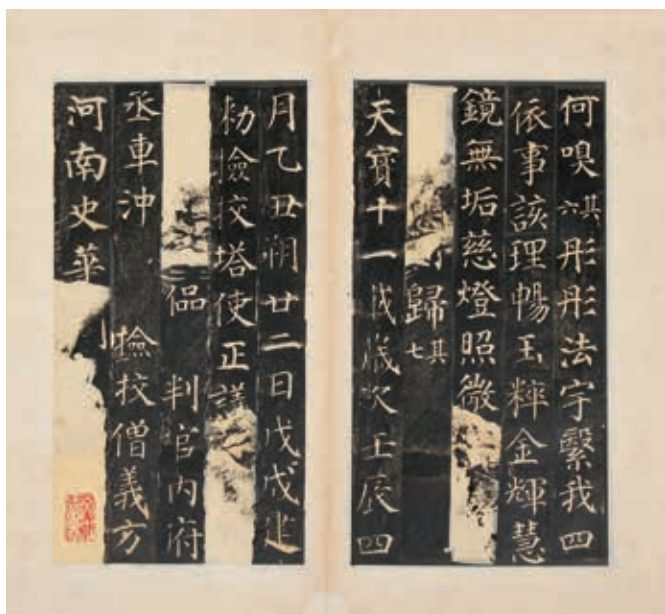 何嗅其六彤彤法宇繫我四
依事該理暢玉粹金輝慧
鏡無垢慈燈照微
歸其七
天寶十一載歲次壬辰四
月乙丑朔廿二日戊戌建
勑撿挍塔使正議
侃 判官內府
丞車沖 撿挍僧義方
河南史華